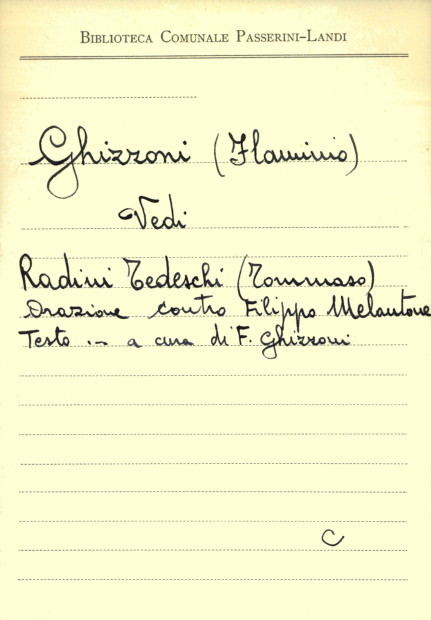 BIBLIOTECA COMUNALE PASSERINI-LANDI
Ghizzoni (Flaminio)
Vedi
Radini Tedeschi (Tommaso)
Orazione contro Filippo Melantone
Testo ... a cura di F. Ghizzoni
C